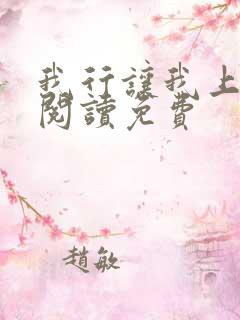 我行讓我上
閱讀免費
趙敏